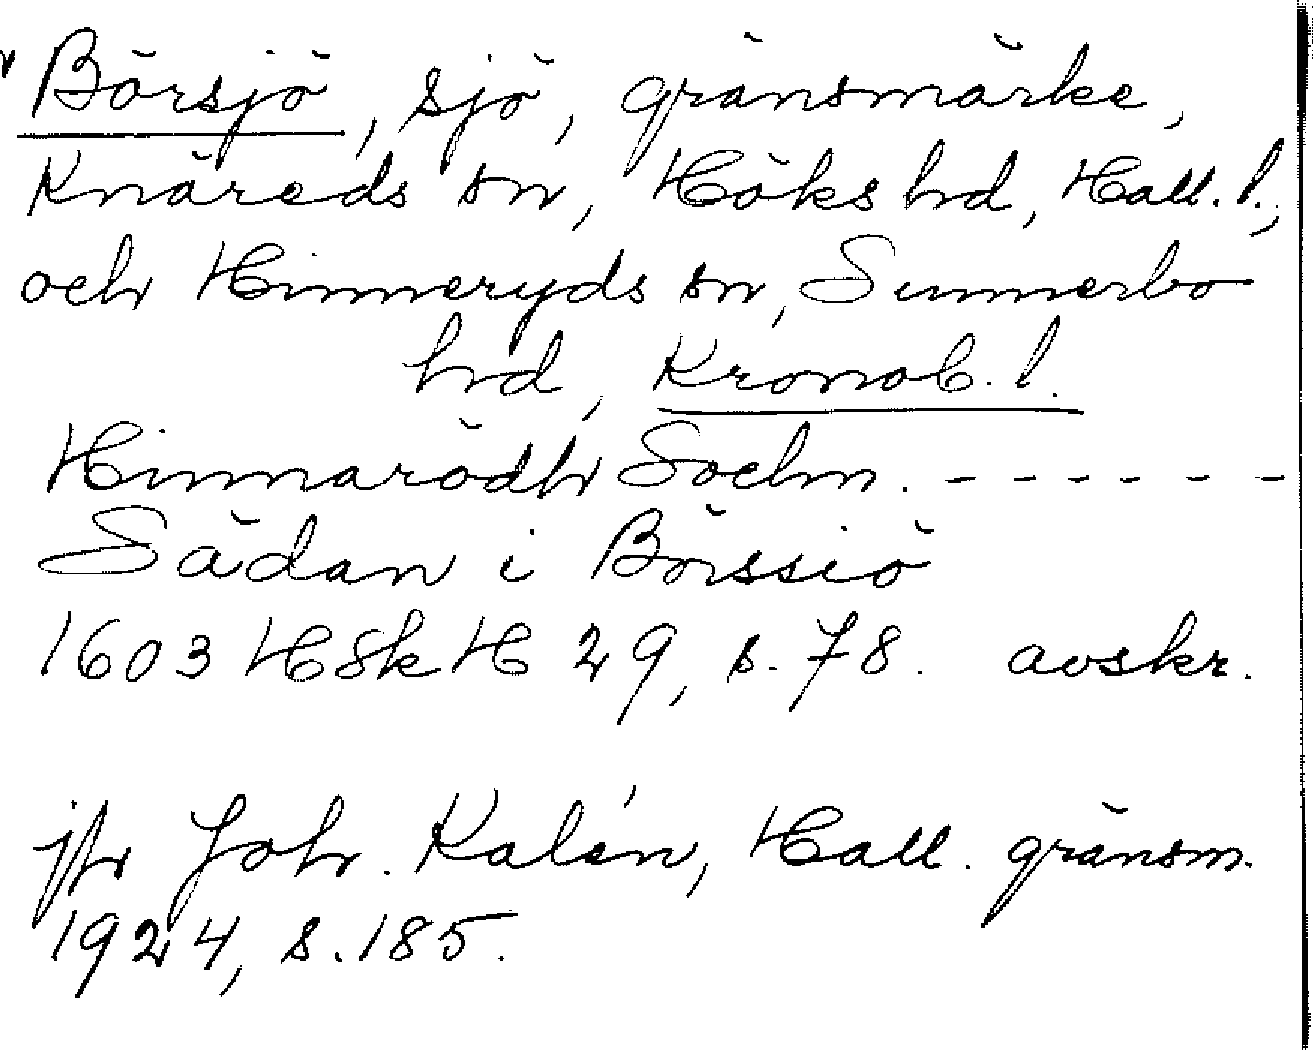 Börsjö, sjö, gränsmärke,
Knäreds sn, Höks hd, Hall. l.,
och Hinneryds sn, Sunnerbo
hd, Kronob. l.
Hinnarödh Sochn. - - - - - -
Sådan i Börssiö
1603 HSkH 29, s. 78. avskr.
jfr Joh. Kalén, Hall. gränsm.
1924, s. 185.